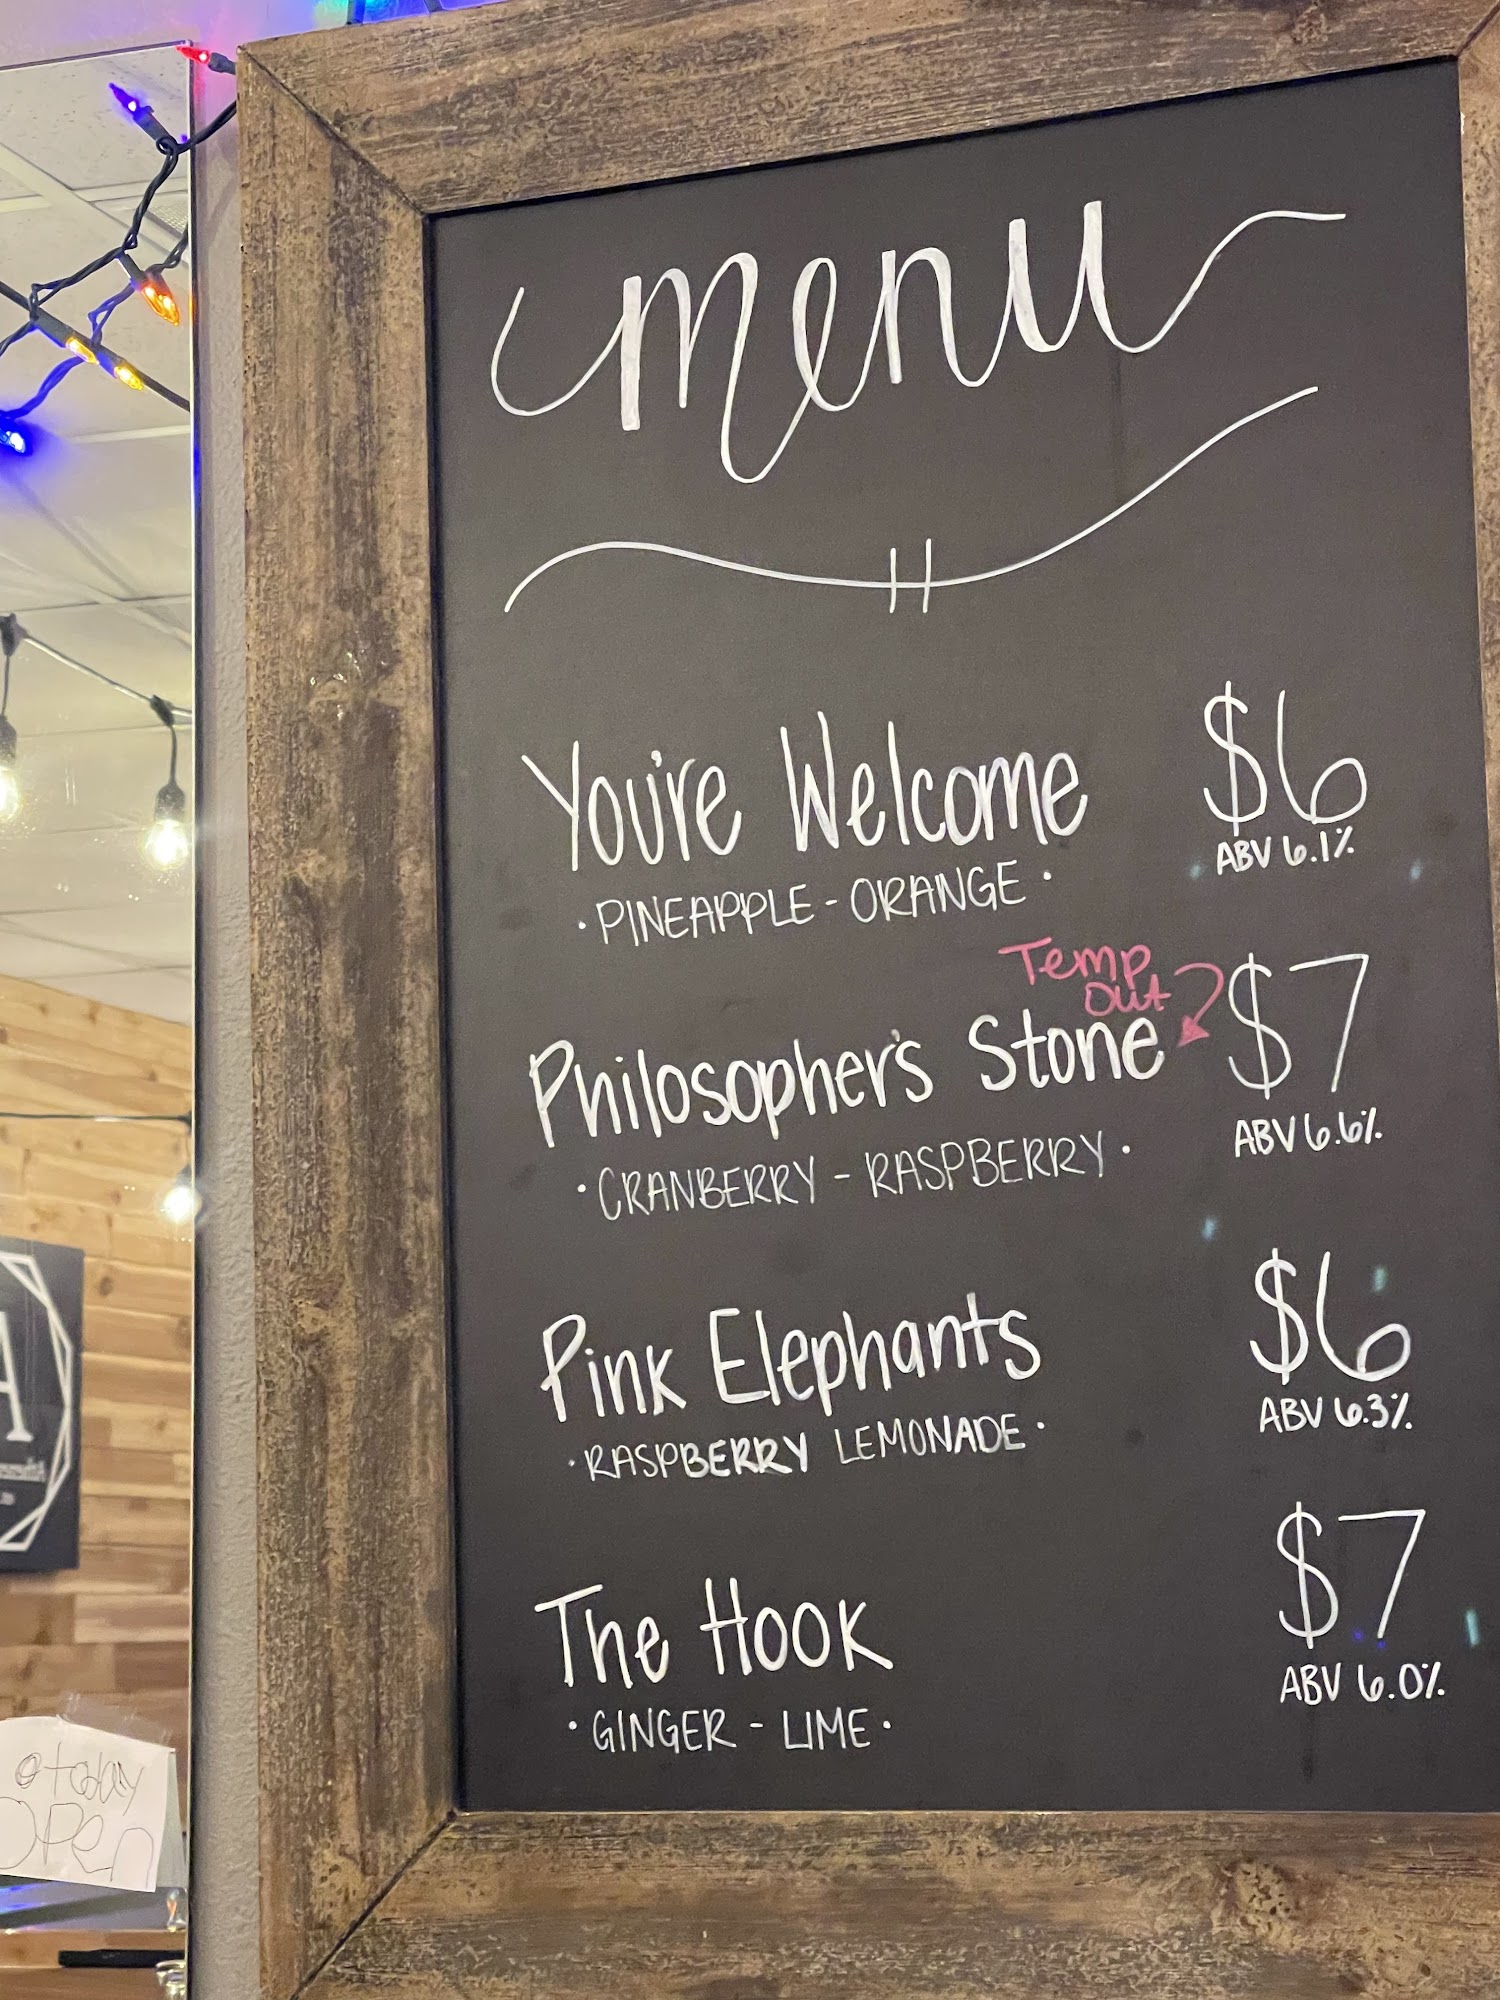 menu
You're Welcome
$6
ABV 6.1%
· PINEAPPLE - ORANGE ·
Temp
out
Philosopher's Stone
$7
ABV 6.6%
· CRANBERRY - RASPBERRY ·
Pink Elephants
$6
ABV 6.3%
· RASPBERRY LEMONADE ·
The Hook
$7
ABV 6.0%
· GINGER - LIME ·
A
today
OPen